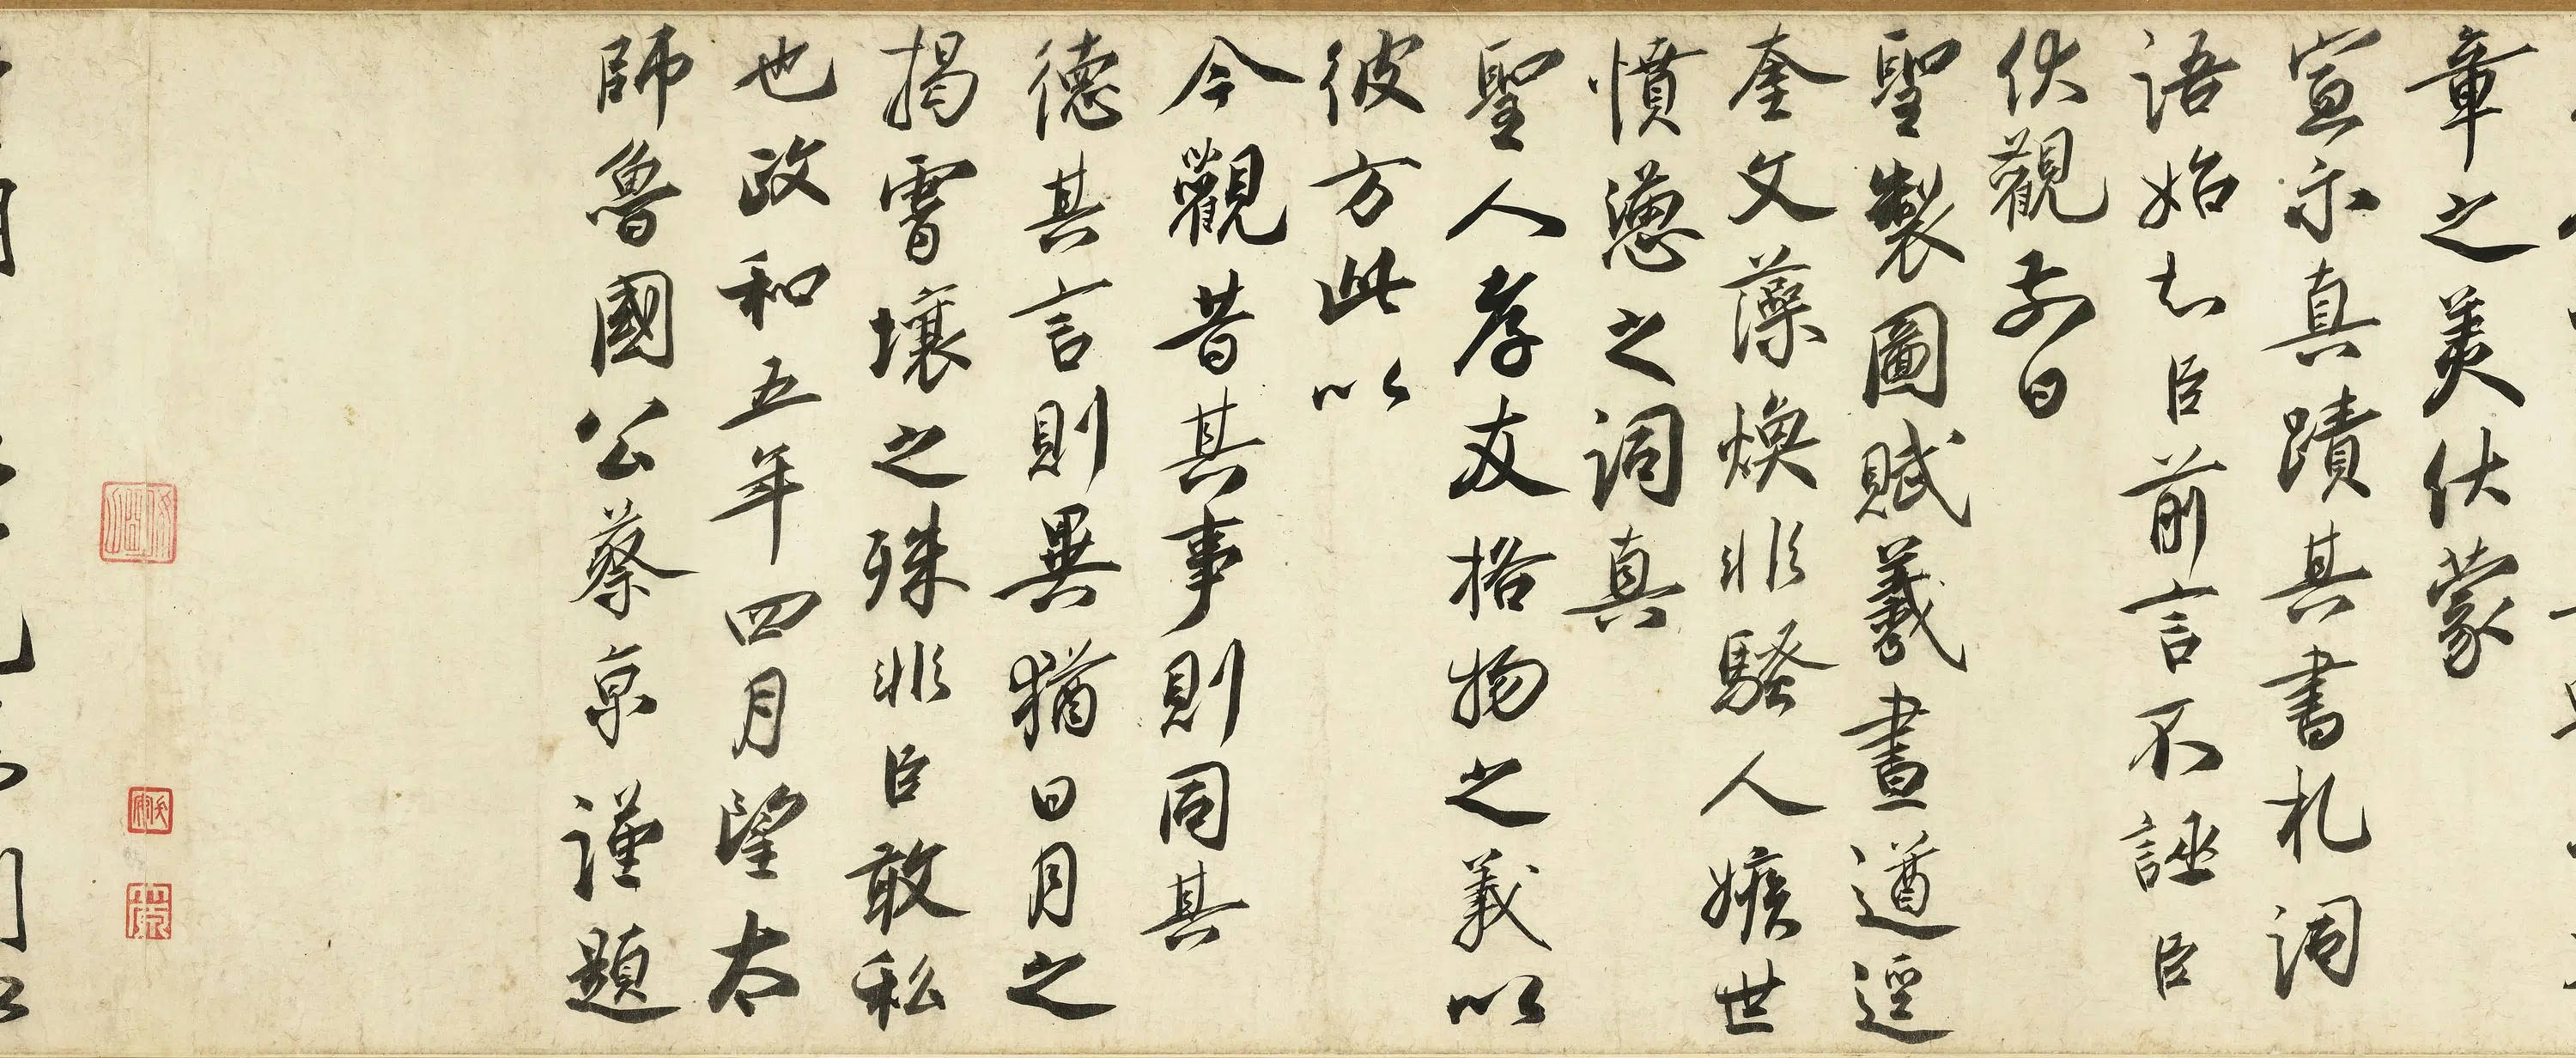 章之美伏蒙
宣示真蹟其書札詞
語始知臣前言不誣臣
伏觀前日
聖製圖賦羲畫遒逕
奎文藻煥非騷人嫉世
憤懣之詞真
聖人孝友格物之義以
彼方此以
今觀昔其事則同其
德其言則異猶日月之
揭霄壤之殊非臣敢私
也政和五年四月望太
師魯國公蔡京謹題